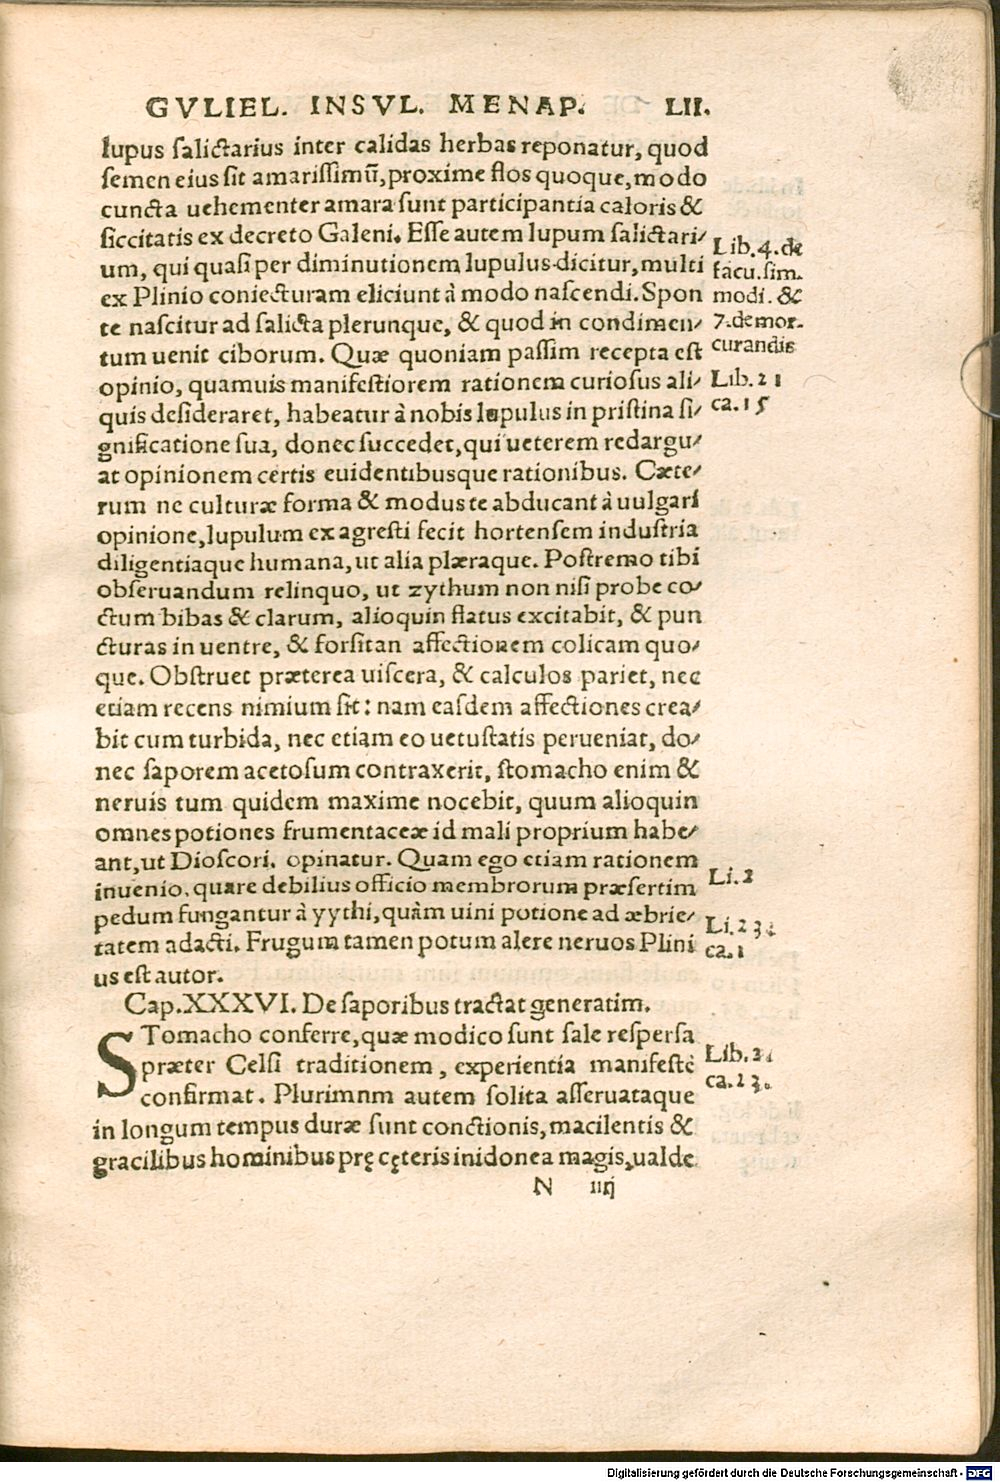 GVLIEL. INSVL. MENAP. LII.
lupus ſalictarius inter calidas herbas reponatur, quod
ſemen eius ſit amariſſimū, proxime flos quoque, modo
cuncta uehementer amara ſunt participantia caloris &
ſiccitatis ex decreto Galeni. Eſſe autem lupum ſalictari-
um, qui quaſi per diminutionem lupulus dicitur, multi
ex Plinio coniecturam eliciunt à modo naſcendi. Spon
te naſcitur ad ſalicta plerunque, & quod in condimen-
tum uenit ciborum. Quæ quoniam paſſim recepta eſt
opinio, quamuis manifeſtiorem rationem curioſus ali-
quis deſideraret, habeatur à nobis lupulus in priſtina ſi-
gnificatione ſua, donec ſuccedet, qui ueterem redargu-
at opinionem certis euidentibusque rationibus. Cæte-
rum ne culturæ forma & modus te abducant à uulgari
opinione, lupulum ex agreſti fecit hortenſem induſtria
diligentiaque humana, ut alia plæraque. Poſtremo tibi
obſeruandum relinquo, ut zythum non niſi probe co-
ctum bibas & clarum, alioquin flatus excitabit, & pun
cturas in uentre, & forſitan affectionem colicam quo-
que. Obſtruet præterea uiſcera, & calculos pariet, nec
etiam recens nimium ſit: nam eaſdem affectiones crea-
bit cum turbida, nec etiam eo uetuſtatis perueniat, do-
nec ſaporem acetoſum contraxerit, ſtomacho enim &
neruis tum quidem maxime nocebit, quum alioquin
omnes potiones frumentaceæ id mali proprium habe-
ant, ut Dioſcori. opinatur. Quam ego etiam rationem
inuenio, quare debilius officio membrorum præſertim
pedum fungantur à yythi, quàm uini potione ad æbrie-
tatem adacti. Frugum tamen potum alere neruos Plini
us eſt autor.
Lib. 4. de
facu. ſim.
modi. &
7. de mor.
curandis
Lib. 21
ca. 15
Li. 2
Li. 23.
ca. 1
Cap. XXXVI. De ſaporibus tractat generatim.
STomacho conferre, quæ modico ſunt ſale reſperſa
præter Celſi traditionem, experientia manifeſtè
confirmat. Plurimnm autem ſolita aſſeruataque
in longum tempus duræ ſunt conctionis, macilentis &
gracilibus hominibus prę cęteris inidonea magis, ualde
Lib. 2
ca. 23.
N iiij
Digitalisierung gefördert durch die Deutsche Forschungsgemeinschaft - DFG